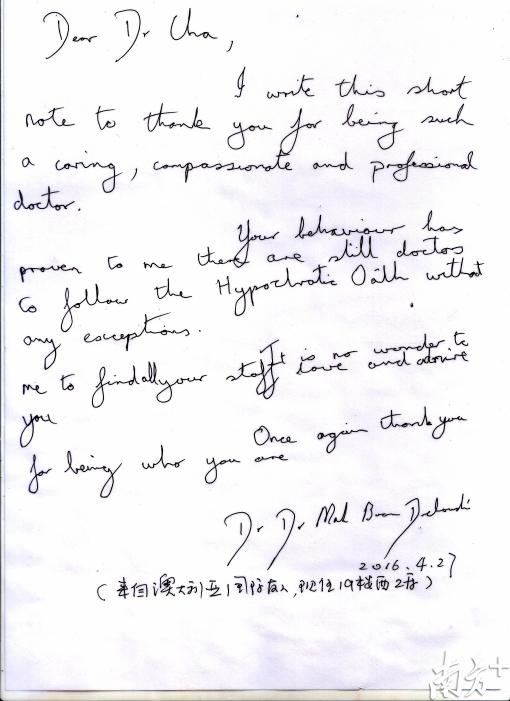 Dear Dr Cha,
I write this short
note to thank you for being such
a caring, compassionate and professional
doctor.
Your behaviour has
proven to me there are still doctors
to follow the Hypochratic Oath without
any exceptions.
It is no wonder to
me to find all your staff love and admire
you
Once again thank you
for being who you are
Dr Dr Mal
2016.4.27
(来自澳大利亚国际友人,现住19楼西2床)
南方+